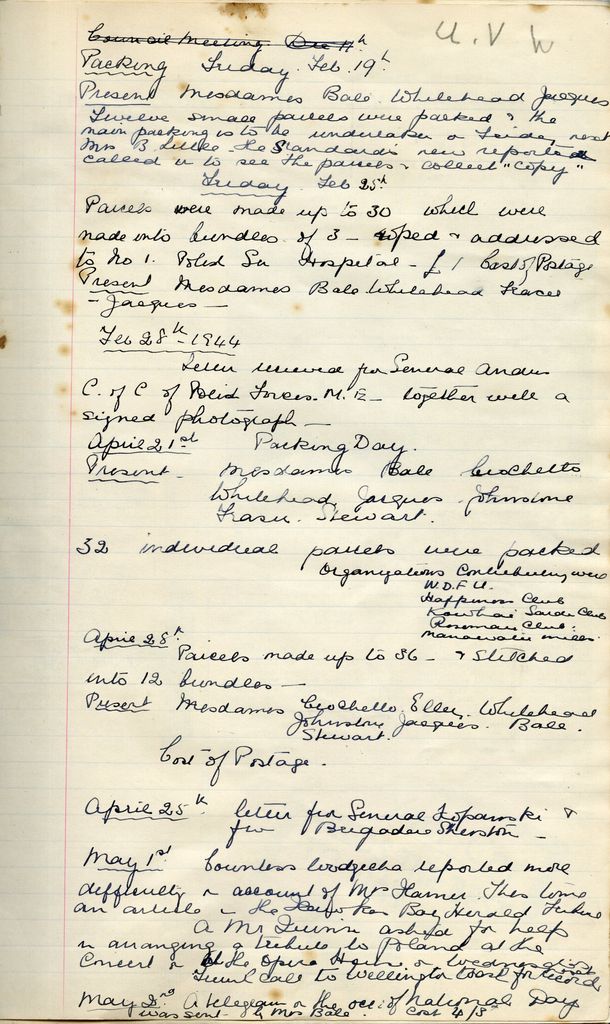 U.V W
Council Meeting Dec 11th
Packing Friday. Feb. 19th
Present Mesdames Bale. Whitehead Jacques
Twelve small parcels were packed & the
main packing is to be undertaken on Friday next
Mrs B. Little the Standard's new reporter
called in to see the parcels & collect "copy"
Friday Feb 25th
Parcels were made up to 30 which were
made into bundles of 3 - roped & addressed
to No 1. Polish Hospital - £1 Cost of Postage
Present Mesdames Bale Whitehead Fraser
- Jacques -
Feb 28th - 1944
Letter received from General Anders
C. of C of Polish Forces. M.E - together with a
signed photograph -
April 21st Packing Day.
Present - Mesdames Bale Crochetto
Whitehead, Jacques. Johnstone
Fraser. Stewart.
32 individual parcels were packed
Organizations Contributing were
W.D.F.U.
Happiness Club
Kowhai Club
Rosemair Club.
Manawatu Mills.
April 28th
Parcels made up to 36 - & Stitched
into 12 bundles -
Present Mesdames Crochetto. Eller. Whitehead
Johnstone Jacques. Bale.
Stewart.
Cost of Postage.
April 25th letter from General &
from Brigadier -
May 1st Countess Wodzicka reported more
difficulty on account of Mrs Harner. This time
an article in the Hawkes Bay Herald Tribune
A Mr Quinn asked for help
in arranging a tribute to Poland at the
Concert in the Opera House on Wednesday
call to Wellington for record
May 2nd A telegram on the occ. of National Day
was sent by Mrs Bale. Cost 4/3